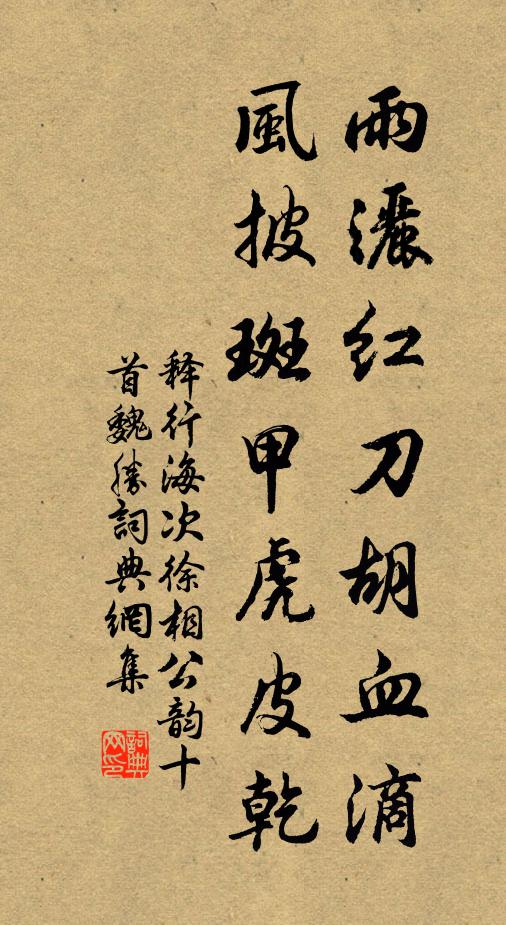 雨灑紅刀胡血滴
風披斑甲虎皮乾
釋行海次徐相公韵十
首魏勝詞典網集
詞典
网印